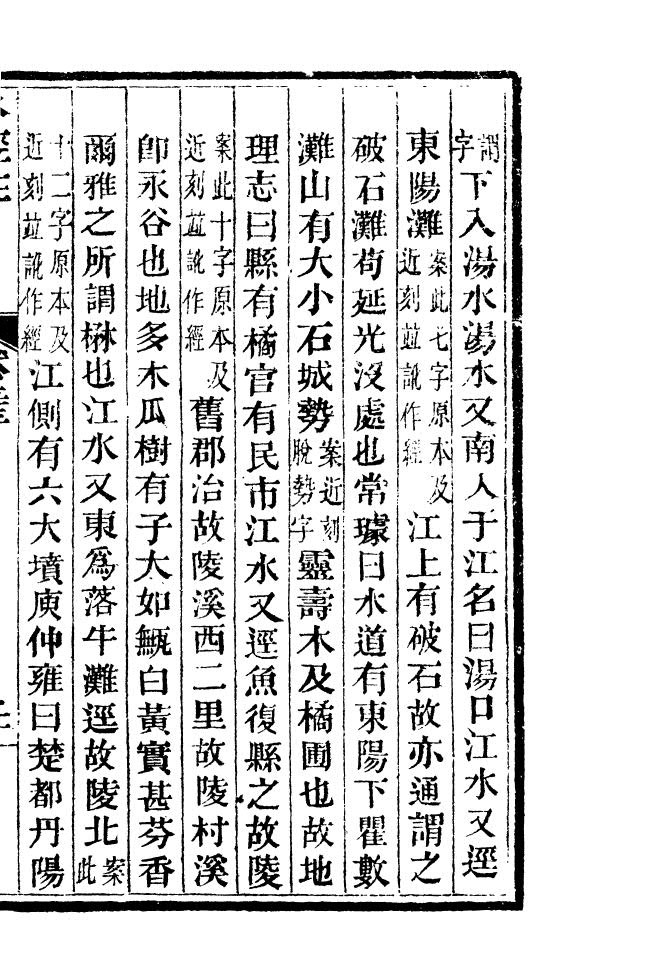 謂字下入湯水湯水又南入于江名曰湯口江水又逕
東陽灘案此七字原本及近刻並訛作經江上有破石故亦通謂之
破石灘苟延光沒處也常璩曰水道有東陽下瞿數
灘山有大小石城勢案近刻脫勢字靈壽木及橘圃也故地
理志曰縣有橘官有民市江水又逕魚復縣之故陵
案此十字原本及近刻並訛作經舊郡治故陵溪西二里故陵村溪
卽永谷也地多木瓜樹有子大如甒白黃實甚芬香
爾雅之所謂楙也江水又東爲落牛灘逕故陵北案此
十二字原本及近刻並訛作經江側有六大墳庾仲雍曰楚都丹陽